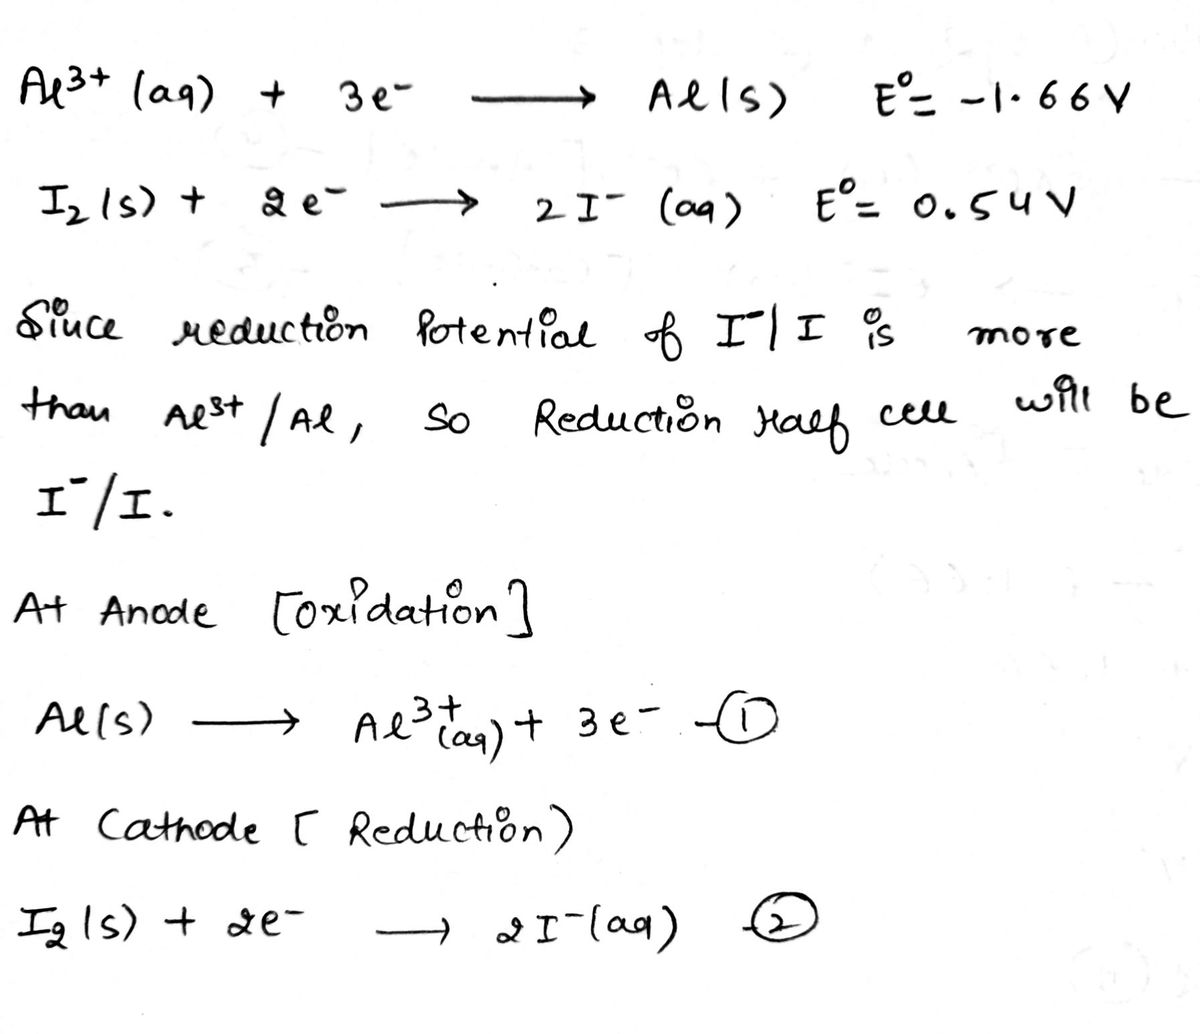 Al³⁺ (aq) + 3e⁻ ⟶ Al(s) E⁰= -1.66 V
I₂(s) + 2e⁻ ⟶ 2I⁻ (aq) E⁰= 0.54 V
Since reduction Potential of I⁻/I is more
than Al³⁺/Al, So Reduction Half cell will be
I⁻/I.
At Anode [oxidation]
Al(s) ⟶ Al³⁺(aq) + 3e⁻ -①
At Cathode [Reduction)
I₂(s) + 2e⁻ ⟶ 2I⁻(aq) -②